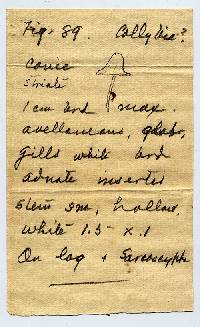 Fig. 89. Collybia?
conic
striate
1 cm brd max.
avellaneous, glabr,
gills white brd
adnate inserted
stem sm, hollow,
white 1.5 x .1
On log & Sarcoscypha